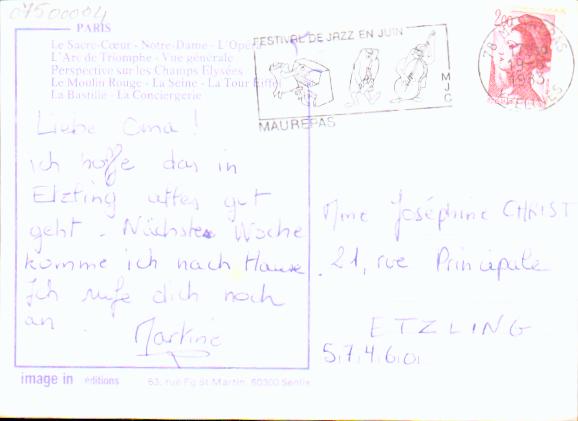 07500004
PARIS
Le Sacre-Cœur - Notre-Dame - L'Opéra
L'Arc de Triomphe - Vue générale
Perspective sur les Champs Elysées
Le Moulin Rouge - La Seine - La Tour Eiffel
La Bastille - La Conciergerie
FESTIVAL DE JAZZ EN JUIN
MJC
MAUREPAS
78
1983
YVELINES
2,00
Liebe Oma!
ich hoffe das in
Etzling alles gut
geht. Nächste Woche
komme ich nach Hause
Ich rufe dich noch
an
Martine
Mme Joséphine CHRIST
21, rue Principale
ETZLING
57460
image in editions
63, rue Fg St Martin, 60300 Senlis